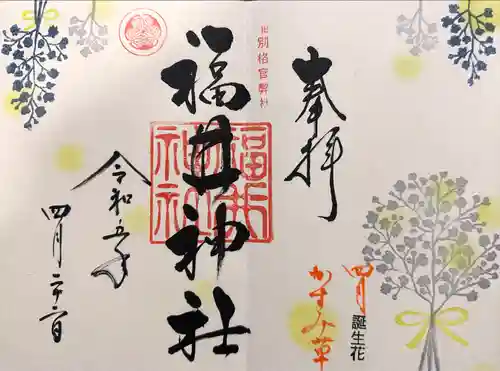 奉拝
旧別格官幣社
福井神社
福井神社
令和五年
四月二十二日
四月誕生花
かすみ草